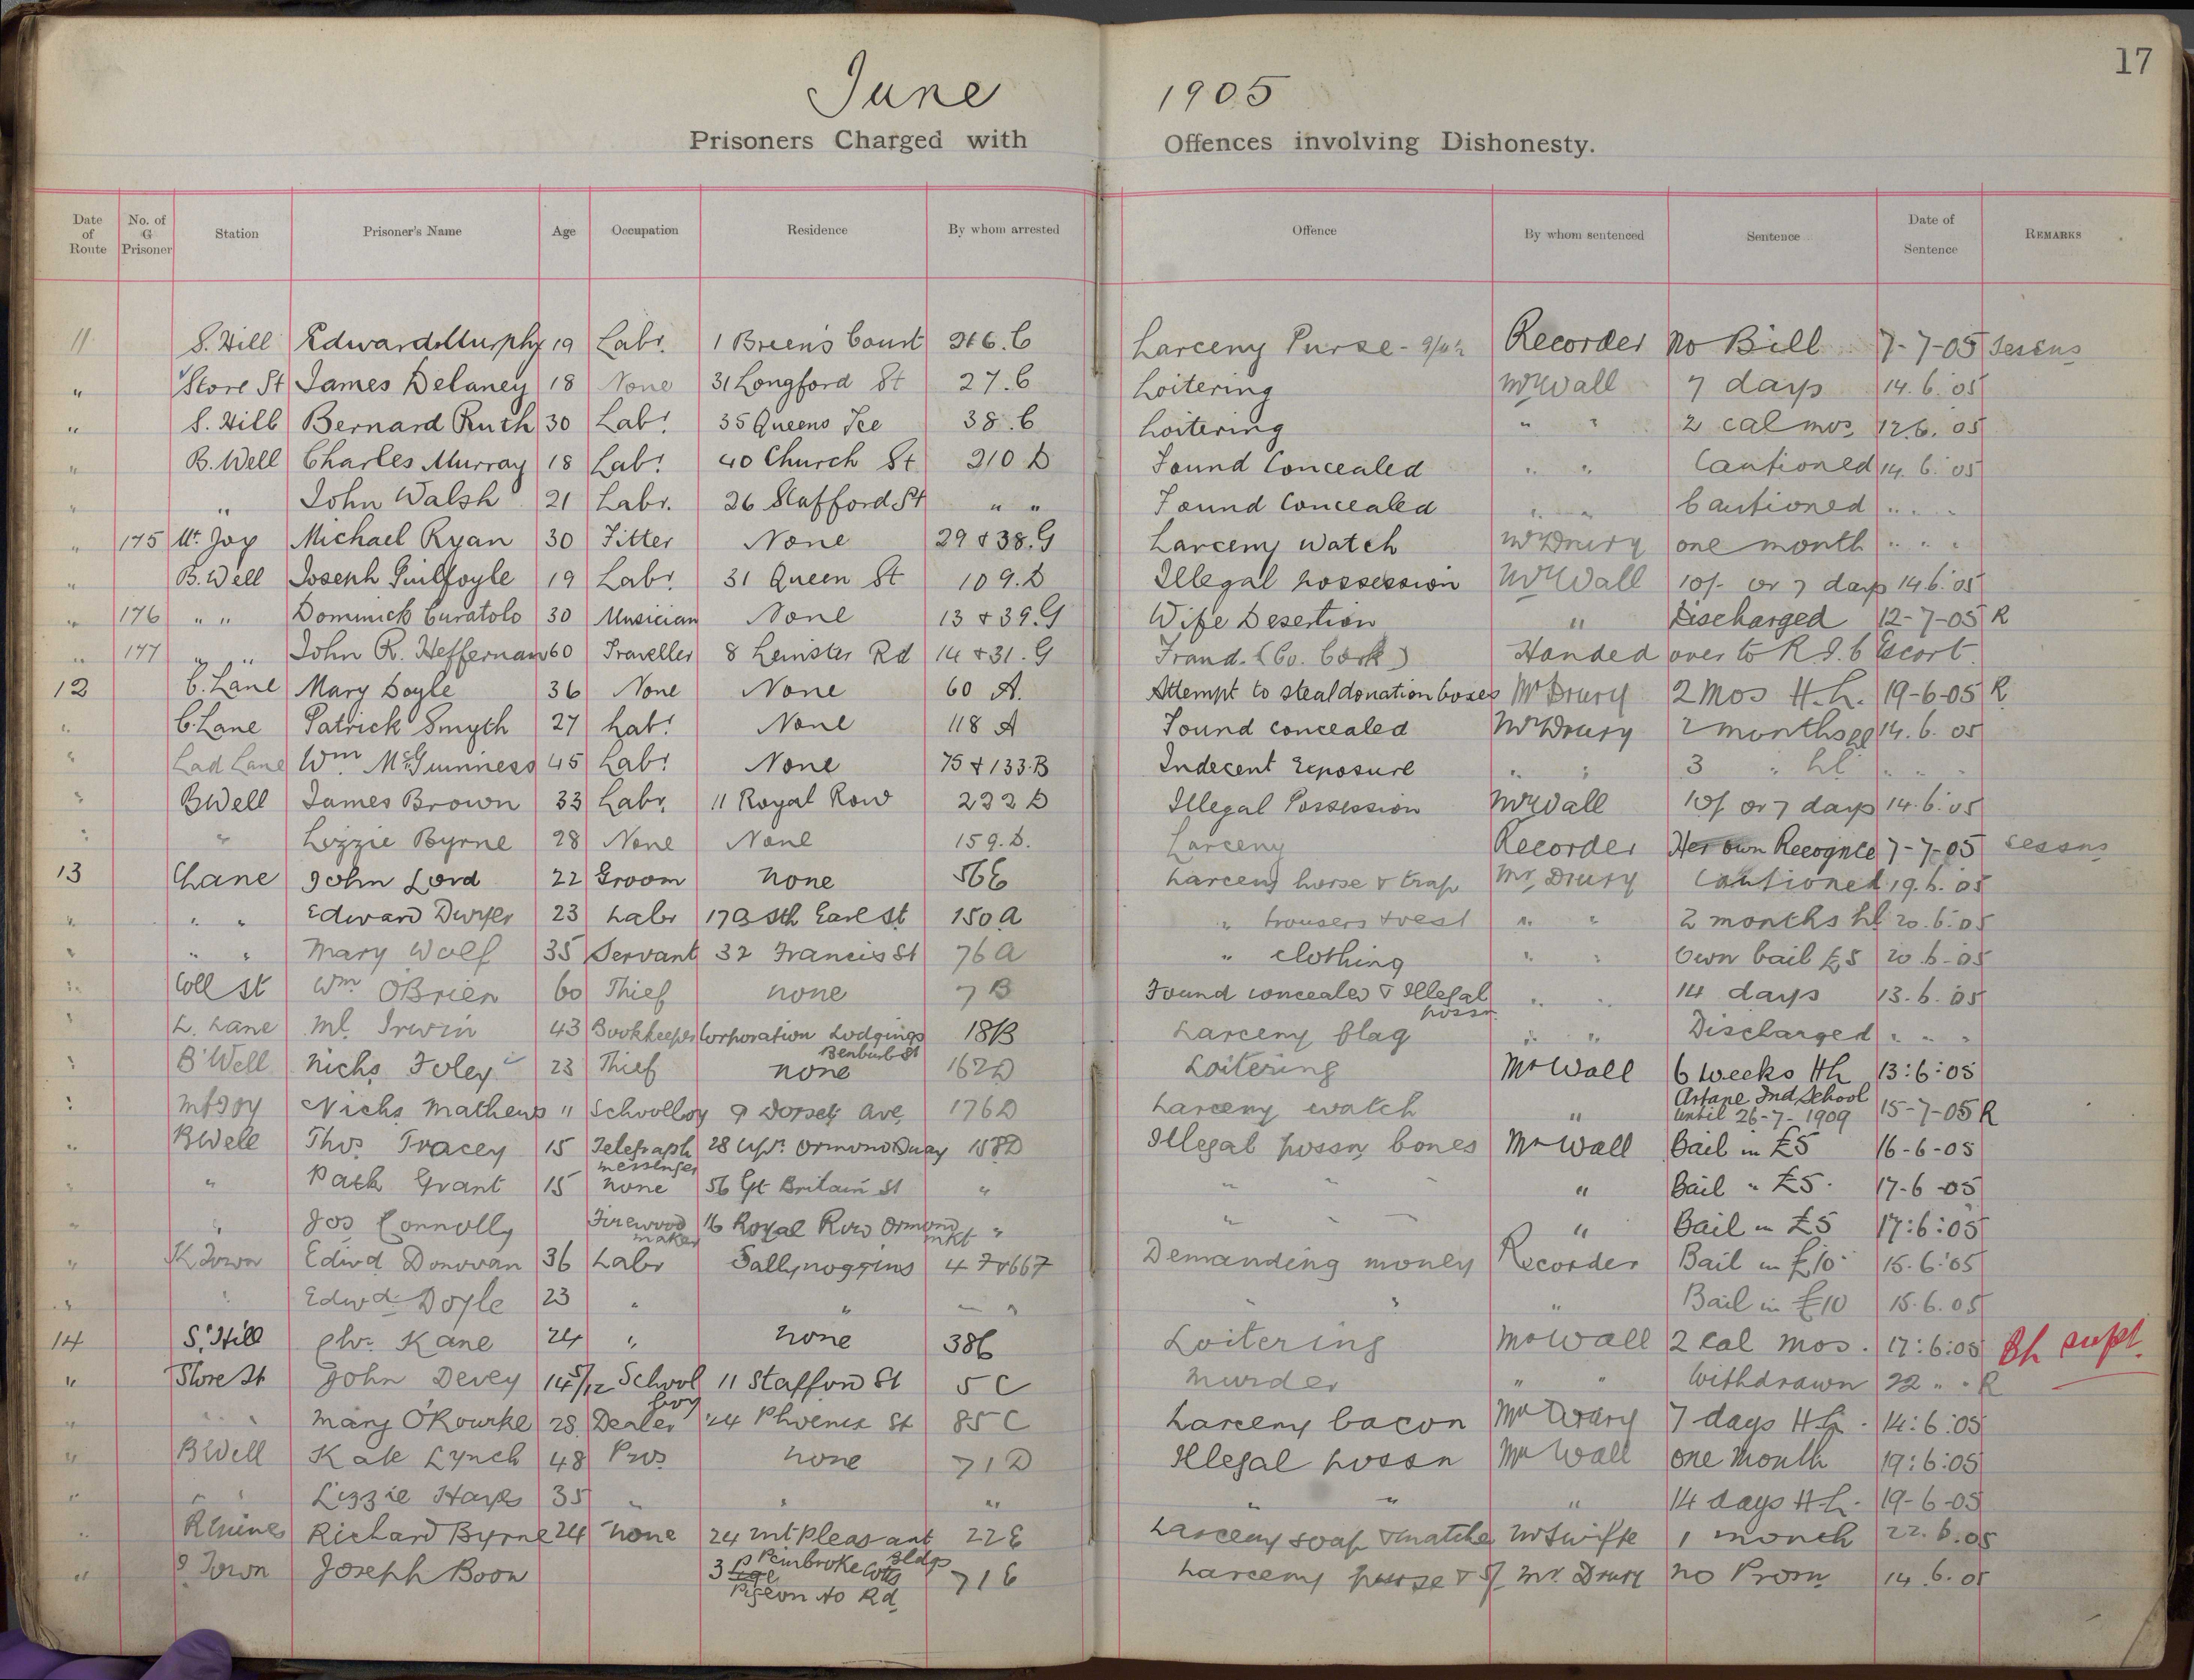 17
June 1905
Prisoners Charged with Offences involving Dishonesty.
Date of Route No. of G Prisoner Station Prisoner's Name Age Occupation Residence By whom arrested Offence By whom sentenced Sentence Date of Sentence REMARKS
11 S. Hill Edward Murphy 19 Labr. 1 Breen's Court 216.C Larceny Purse - Recorder No Bill 7-7-05 Sessns
" Store St James Delaney 18 None 31 Longford St 27.C Loitering Mr Wall 7 days 14.6.05
" S. Hill Bernard Ruth 30 Labr. 35 Queens Tce 38.C Loitering " " 2 cal mos. 12.6.05
" B. Well Charles Murray 18 Labr. 40 Church St 210 D Found Concealed " " Cautioned 14.6.05
" " John Walsh 21 Labr. 26 Stafford St " " Found Concealed " " Cautioned " " "
" 175 Mt. Joy Michael Ryan 30 Fitter None 29 & 38.G Larceny Watch Mr Drury one month " " "
" B. Well Joseph Guilfoyle 19 Labr. 31 Queen St 109.D Illegal possession Mr Wall 10/- or 7 days 14.6.05
" 176 " " Dominick Curatolo 30 Musician None 13 & 39.G Wife Desertion " Discharged 12-7-05 R
" 177 " " John R. Heffernan 60 Traveller 8 Leinster Rd 14 & 31.G Fraud. (Co. Cork) Handed over to R.I.C Escort.
12 C. Lane Mary Doyle 36 None None 60 A. Attempt to steal donation boxes Mr Drury 2 Mos H.L. 19-6-05 R
" C. Lane Patrick Smyth 27 Labr. None 118 A Found concealed Mr Drury 2 months hl 14.6.05
" Lad Lane Wm. McGuinness 45 Labr. None 75 & 133.B Indecent Exposure " " 3 " hl " " "
" B Well James Brown 33 Labr. 11 Royal Row 222 D Illegal Possession Mr Wall 10/- or 7 days 14.6.05
" " Lizzie Byrne 28 None None 159.D. Larceny Recorder Her own Recognce 7-7-05 Sessns
13 C Lane John Lord 22 Groom none 56E Larceny horse & trap Mr. Drury Cautioned 19.6.05
" " " Edward Dwyer 23 Labr 173 Sth Earl St 150A " trousers & vest " " 2 months hl 20.6.05
" " " Mary Wolf 35 Servant 32 Francis St 76A " clothing " " Own bail £5 20.6-05
" Coll St Wm O'Brien 60 Thief none 7B Found concealed & Illegal possn " " 14 days 13.6.05
" L. Lane Ml. Irwin 43 Bookkeeper Corporation Lodgings Benburb St 18B Larceny flag " " Discharged " " "
" B'Well Nichs Foley 23 Thief none 162D Loitering Mr Wall 6 weeks Hl 13:6:05
" Mt Joy Nichs Mathews 11 Schoolboy 9 Dorset Ave 176D Larceny watch " Artane Ind. School until 26-7-1909 15-7-05 R
" B Well Thos Tracey 15 Telegraph messenger 28 Upr. Ormond Quay 158D Illegal possn bones Mr Wall Bail in £5 16-6-05
" " Patk Grant 15 none 56 Gt Britain St " " " " " Bail " £5. 17-6-05
" " Jos Connolly Firewood maker 16 Royal Row Ormond mkt " " " " " Bail in £5 17:6:05
" K Town Edwd Donovan 36 Labr Sallynoggins 47 & 66F Demanding money Recorder Bail in £10 15.6.05
" " Edwd. Doyle 23 " " " " " " " Bail in £10 15.6.05
14 S. Hill Chr. Kane 24 " none 38C Loitering Mr Wall 2 cal mos. 17:6:05
" Store St John Devey 14 5/12 School boy 11 Stafford St 5C Murder " " Withdrawn 22 " " R
" " " Mary O'Rourke 28 Dealer 24 Phoenix St 85C Larceny bacon Mr Drury 7 days H.L. 14:6:05
" B Well Kate Lynch 48 Pros none 71D Illegal possn Mr Wall one Month 19:6:05
" " " Lizzie Hayes 35 " " " " " " 14 days H.L. 19-6-05
" R Mines Richard Byrne 24 none 24 Mt Pleasant Bldgs 22E Larceny soap & matches Mr Swifte 1 month 22.6.05
" I Town Joseph Boon 3 Pembroke Cotts Pigeon Ho Rd 71E Larceny purse & 5/ Mr. Drury no Prosn 14.6.05